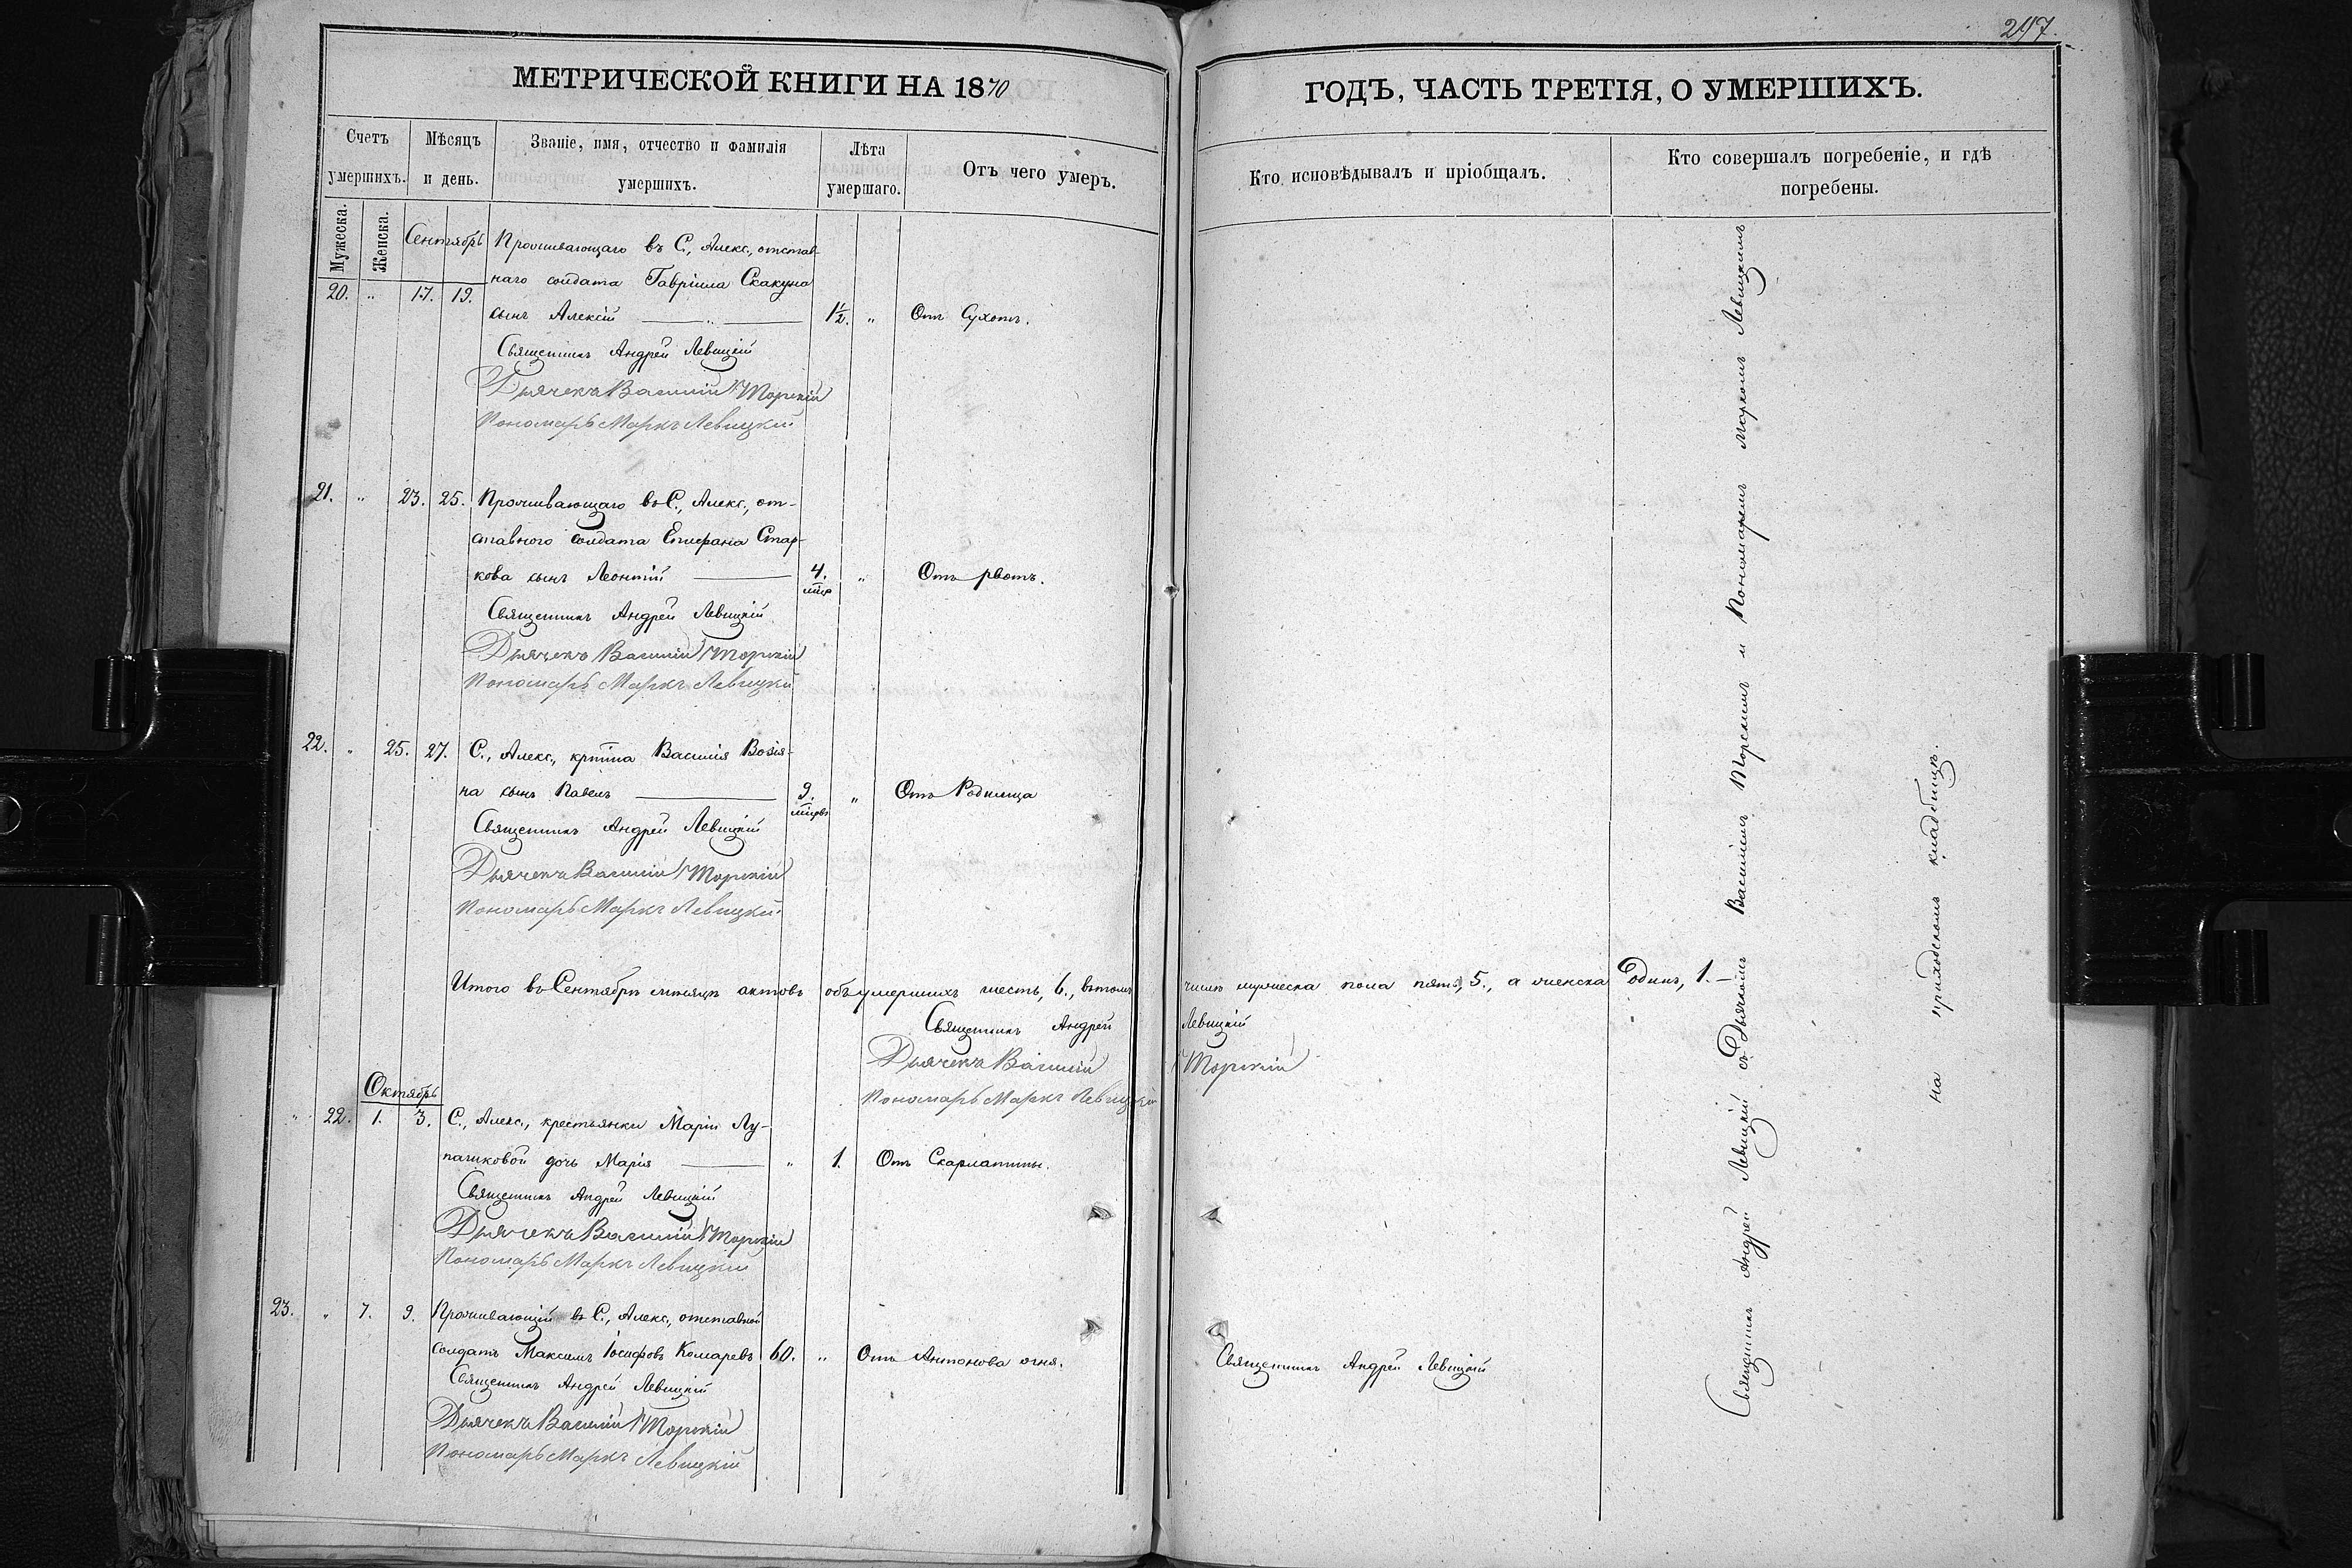 297.
МЕТРИЧЕСКОЙ КНИГИ НА 1870
ГОДЪ, ЧАСТЬ ТРЕТІЯ, О УМЕРШИХЪ.
Счетъ умершихъ.
Мужеска.
Женска.
Мѣсяцъ и день.
Званіе, имя, отчество и фамилія умершихъ.
Лѣта умершаго.
Отъ чего умеръ.
Кто исповѣдывалъ и пріобщалъ.
Кто совершалъ погребеніе, и гдѣ погребены.
Сентябрь
Проживающаго въ С., Алекс., отстав-
наго солдата Гавріила Скакуна
20. „ 17. 19.
сынъ Алексій — „ — 1½. „ Отъ Сухотъ.
Священникъ Андрей Левицкій
Дьячекъ Василій Торскій
Пономарь Маркъ Левицкій
21. „ 23. 25. Проживающаго въ С., Алекс., от-
ставного солдата Епифана Стар-
кова сынъ Леонтій — 4. „ Отъ рвотъ.
Священникъ Андрей Левицкій
Дьячекъ Василій Торскій
Пономарь Маркъ Левицкій
22. „ 25. 27. С., Алекс., крптна Василія Возія-
на сынъ Павелъ — 9. „ Отъ Родимца
Священникъ Андрей Левицкій
Дьячекъ Василій Торскій
Пономарь Маркъ Левицкій
Итого въ Сентябрѣ мѣсяцѣ актовъ объ умершихъ шесть, 6., въ томъ числѣ мужеска пола пять, 5., а женска Одинъ, 1.—
Священникъ Андрей Левицкій
Дьячекъ Василій Торскій
Пономарь Маркъ Левицкій
Октябрь
„ 22. 1. 3. С., Алекс., крестьянки Маріи Лу-
пашковой дочь Марія — „ 1. Отъ Скарлатины.
Священникъ Андрей Левицкій
Дьячекъ Василій Торскій
Пономарь Маркъ Левицкій
23. „ 7. 9. Проживающій въ С., Алекс., отставной
солдатъ Максимъ Іосифовъ Комаревъ 60. „ Отъ Антонова огня. Священникъ Андрей Левицкій
Священникъ Андрей Левицкій
Дьячекъ Василій Торскій
Пономарь Маркъ Левицкій
Священникъ Андрей Левицкій съ Дьячкомъ Василіемъ Торскимъ и Пономаремъ Маркомъ Левицкимъ
на приходскомъ кладбищѣ.